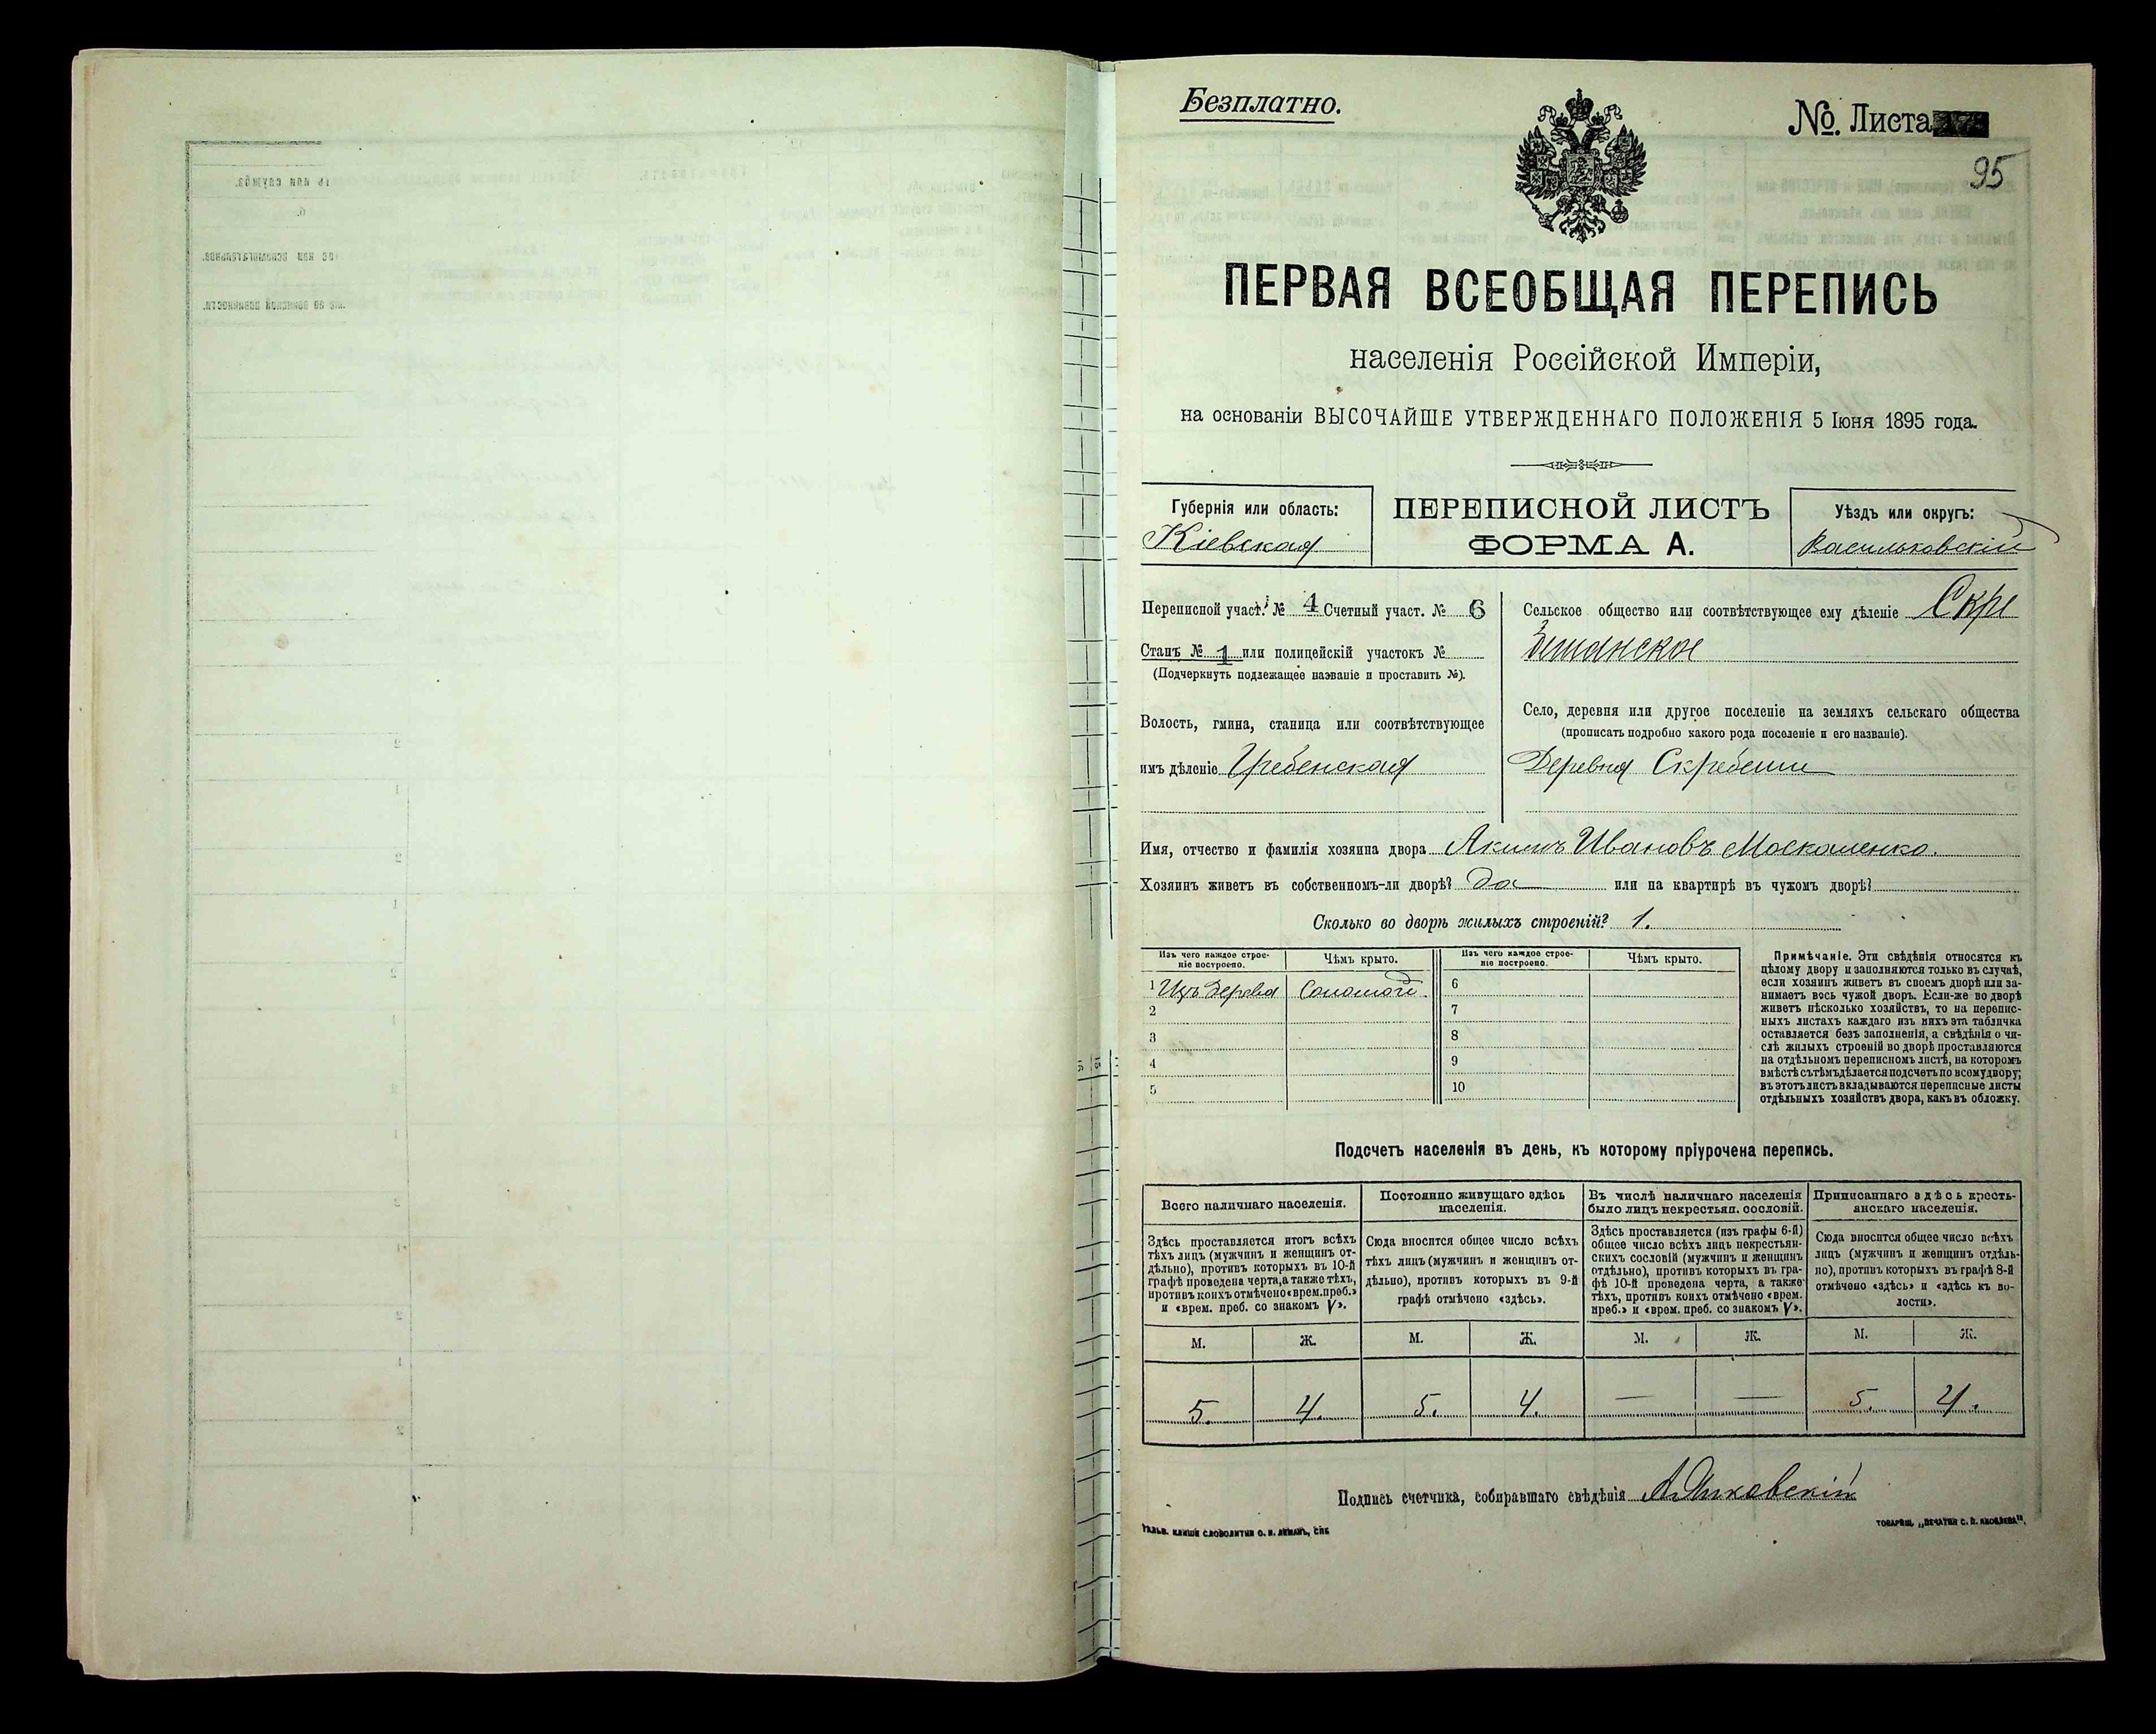 Безплатно.
№. Листа
95
ПЕРВАЯ ВСЕОБЩАЯ ПЕРЕПИСЬ
населенія Россійской Имперіи,
на основаніи ВЫСОЧАЙШЕ УТВЕРЖДЕННАГО ПОЛОЖЕНІЯ 5 Іюня 1895 года.
Губернія или область:
Кіевская
ПЕРЕПИСНОЙ ЛИСТЪ
ФОРМА А.
Уѣздъ или округъ:
Васильковскій
Переписной участ. № 4 Счетный участ. № 6
Станъ № 1 или полицейскій участокъ №
(Подчеркнуть подлежащее названіе и проставить №).
Волость, гмина, станица или соотвѣтствующее
имъ дѣленіе Гребенская
Сельское общество или соотвѣтствующее ему дѣленіе Скре
Село, деревня или другое поселеніе на земляхъ сельскаго общества
(прописать подробно какого рода поселеніе и его названіе).
Деревня Скребеши
Имя, отчество и фамилія хозяина двора Акимъ Ивановъ Москаленко.
Хозяинъ живетъ въ собственномъ-ли дворѣ? да или на квартирѣ въ чужомъ дворѣ?
Сколько во дворѣ жилыхъ строеній? 1.
Изъ чего каждое строе-
ніе построено.
Чѣмъ крыто.
Изъ чего каждое строе-
ніе построено.
Чѣмъ крыто.
1 Изъ дерева Соломой 6
2 7
3 8
4 9
5 10
Примѣчаніе. Эти свѣдѣнія относятся къ
цѣлому двору и заполняются только въ случаѣ,
если хозяинъ живетъ въ своемъ дворѣ или за-
нимаетъ весь чужой дворъ. Если-же во дворѣ
живетъ нѣсколько хозяйствъ, то на перепис-
ныхъ листахъ каждаго изъ нихъ эта табличка
оставляется безъ заполненія, а свѣдѣнія о чи-
слѣ жилыхъ строеній во дворѣ проставляются
на отдѣльномъ переписномъ листѣ, на которомъ
вмѣстѣ съ тѣмъ дѣлается подсчетъ по всему двору;
въ этотъ листъ вкладываются переписные листы
отдѣльныхъ хозяйствъ двора, какъ въ обложку.
Подсчетъ населенія въ день, къ которому пріурочена перепись.
Всего наличнаго населенія.
Здѣсь проставляется итогъ всѣхъ
тѣхъ лицъ (мужчинъ и женщинъ от-
дѣльно), противъ которыхъ въ 10-й
графѣ проведена черта, а также тѣхъ,
противъ коихъ отмѣчено «врем. преб.»
и «врем. преб. со знакомъ V».
Постоянно живущаго здѣсь
населенія.
Сюда вносится общее число всѣхъ
тѣхъ лицъ (мужчинъ и женщинъ от-
дѣльно), противъ которыхъ въ 9-й
графѣ отмѣчено «здѣсь».
Въ числѣ наличнаго населенія
было лицъ некрестьян. сословій.
Здѣсь проставляется (изъ графы 6-й)
общее число всѣхъ лицъ некрестьян-
скихъ сословій (мужчинъ и женщинъ
отдѣльно), противъ которыхъ въ гра-
фѣ 10-й проведена черта, а также
тѣхъ, противъ коихъ отмѣчено «врем.
преб.» и «врем. преб. со знакомъ V».
Приписаннаго здѣсь кресть-
янскаго населенія.
Сюда вносится общее число всѣхъ
лицъ (мужчинъ и женщинъ отдѣль-
но), противъ которыхъ въ графѣ 8-й
отмѣчено «здѣсь» и «здѣсь къ во-
лости».
М. Ж. М. Ж. М. Ж. М. Ж.
5. 4. 5. 4. — — 5. 4.
Подпись счетчика, собиравшаго свѣдѣнія
ГАЛЬВ. КЛИШЕ СЛОВОЛИТНИ О. И. ЛЕМАНЪ, СПБ
ТОВАРИЩ. „ПЕЧАТНИ С. П. ЯКОВЛЕВА".